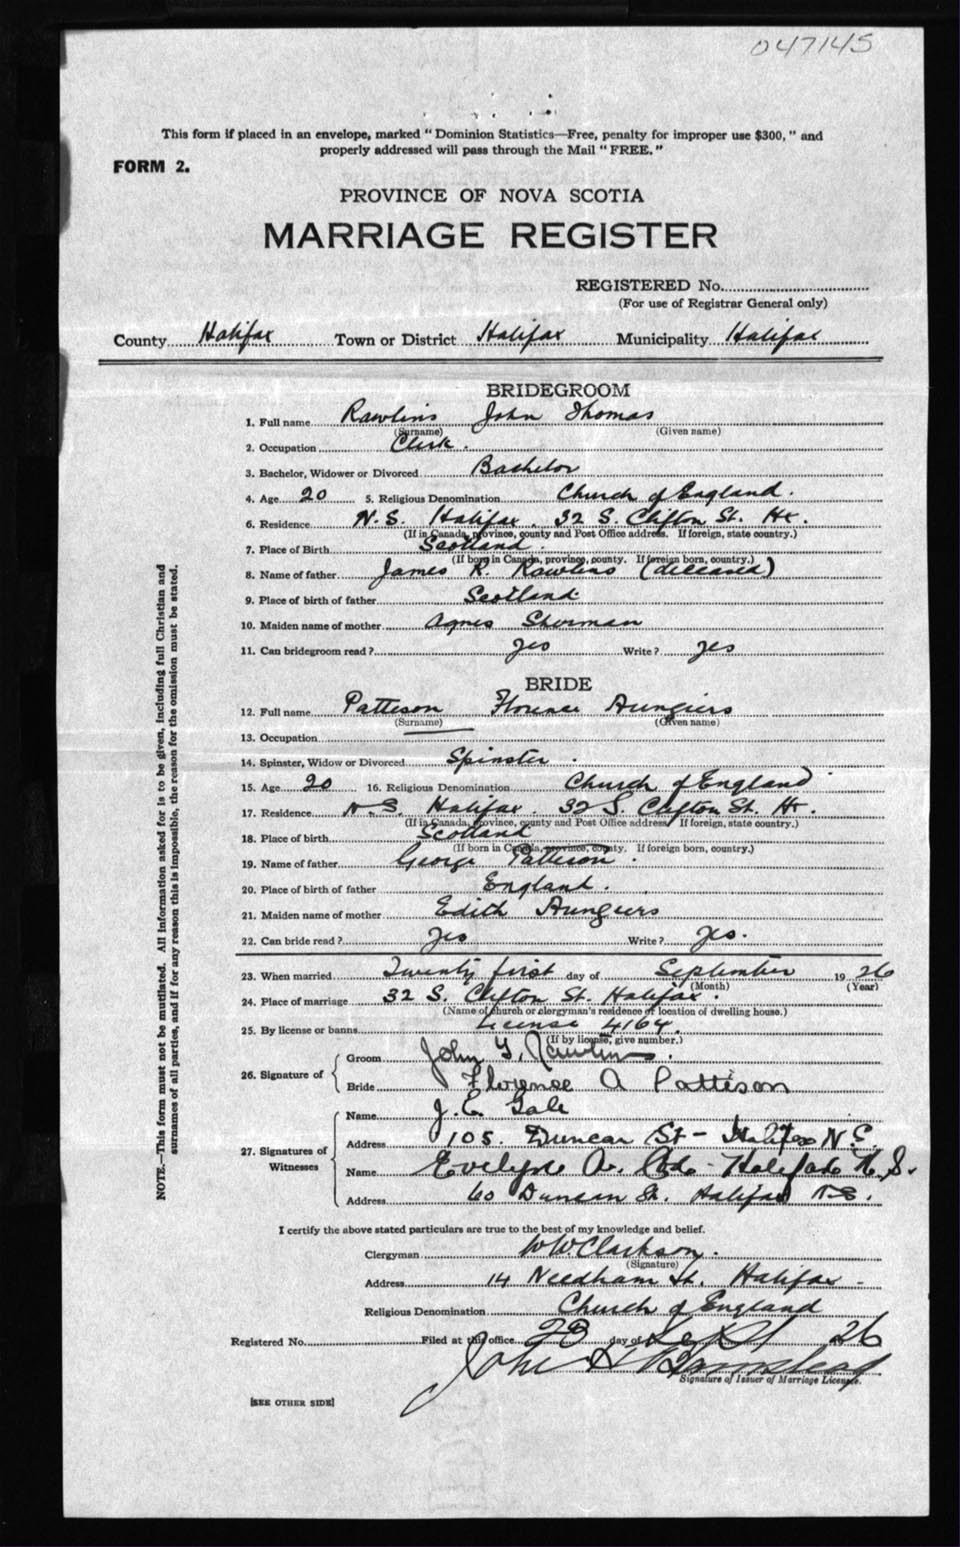 047145
This form if placed in an envelope, marked "Dominion Statistics—Free, penalty for improper use $300," and
properly addressed will pass through the Mail "FREE."
FORM 2.
PROVINCE OF NOVA SCOTIA
MARRIAGE REGISTER
REGISTERED No.
(For use of Registrar General only)
County Halifax Town or District Halifax Municipality Halifax
BRIDEGROOM
1. Full name Rawlins John Thomas
(Surname) (Given name)
2. Occupation Clerk.
3. Bachelor, Widower or Divorced Bachelor
4. Age 20 5. Religious Denomination Church of England.
6. Residence N.S. Halifax. 32 S. Clifton St. Hx.
(If in Canada, province, county and Post Office address. If foreign, state country.)
7. Place of Birth Scotland.
(If born in Canada, province, county. If foreign born, country.)
8. Name of father James R. Rawlins (deceased)
9. Place of birth of father Scotland.
10. Maiden name of mother Agnes Sherman
11. Can bridegroom read? Yes Write? yes
BRIDE
12. Full name Patteson Florence Aungiers
(Surname) (Given name)
13. Occupation
14. Spinster, Widow or Divorced Spinster.
15. Age 20 16. Religious Denomination Church of England
17. Residence N.S. Halifax. 32 S. Clifton St. Hx.
(If in Canada, province, county and Post Office address. If foreign, state country.)
18. Place of birth Scotland
(If born in Canada, province, county. If foreign born, country.)
19. Name of father George Patteson.
20. Place of birth of father England.
21. Maiden name of mother Edith Aungiers
22. Can bride read? Yes Write? Yes.
23. When married Twenty first day of September 1926
(Month) (Year)
24. Place of marriage 32 S. Clifton St. Halifax.
(Name of church or clergyman's residence or location of dwelling house.)
25. By license or banns License 4164.
(If by license, give number.)
26. Signature of
Groom John T. Rawlins.
Bride Florence A Patteson
27. Signatures of Witnesses
Name J. E. Gale
Address 105. Duncan St - Halifax N.S.
Name Evelyne A. Halifax N.S.
Address 60 Duncan St. Halifax N.S.
I certify the above stated particulars are true to the best of my knowledge and belief.
Clergyman W W Clarkson.
(Signature)
Address 14 Needham St. Halifax.
Religious Denomination Church of England
Registered No. Filed at this office 23 day of Sept 26
John H Barnstead
Signature of Issuer of Marriage Licenses.
[SEE OTHER SIDE]
NOTE.—This form must not be mutilated. All information asked for is to be given, including full Christian and
surnames of all parties, and if for any reason this is impossible, the reason for the omission must be stated.